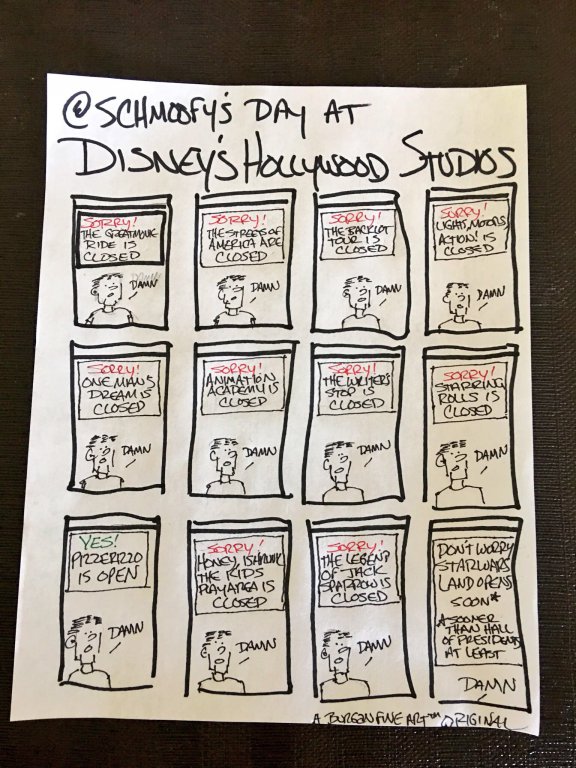 @SCHMOOFY'S DAY AT
DISNEY'S HOLLYWOOD STUDIOS
SORRY!
THE GREAT MOVIE
RIDE IS
CLOSED
DAMN
DAMN
SORRY!
THE STREETS OF
AMERICA ARE
CLOSED
DAMN
SORRY!
THE BACKLOT
TOUR IS
CLOSED
DAMN
SORRY!
LIGHTS, MOTORS,
ACTION! IS
CLOSED
DAMN
SORRY!
ONE MAN'S
DREAM IS
CLOSED
DAMN
SORRY!
ANIMATION
ACADEMY IS
CLOSED
DAMN
SORRY!
THE WRITER'S
STOP IS
CLOSED
DAMN
SORRY!
STARRING
ROLLS IS
CLOSED
DAMN
YES!
PIZZERIZZO
IS OPEN
DAMN
SORRY!
HONEY, I SHRUNK
THE KIDS
PLAY AREA IS
CLOSED
DAMN
SORRY!
THE LEGEND
OF JACK
SPARROW IS
CLOSED
DAMN
DON'T WORRY
STAR WARS
LAND OPENS
SOON*
SOONER
THAN HALL
OF PRESIDENTS
AT LEAST
DAMN
A BURGAN FINE ART™ ORIGINAL